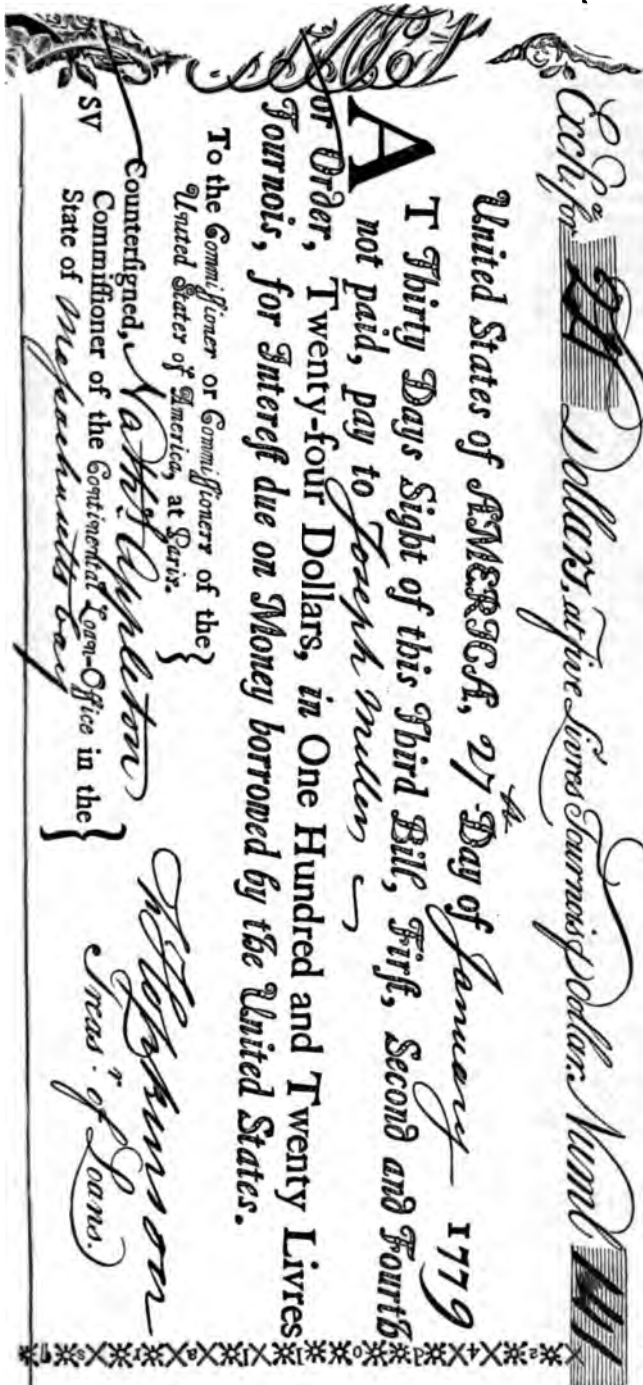 Exchᵃ for 24 Dollars, at five Livres Tournois ℔ Dollar. Numb. 141
United States of AMERICA, 27th Day of January 1779
AT Thirty Days Sight of this Third Bill, Firſt, Second and Fourth
not paid, pay to Joseph Miller
or Order, Twenty-four Dollars, in One Hundred and Twenty Livres
Tournois, for Intereſt due on Money borrowed by the United States.
To the Commiſſioner or Commiſſioners of the
United States of America, at Paris.
Counterſigned, Nathl Appleton
Commiſſioner of the Continental Loan-Office in the
State of Massachusetts bay
F Hopkinson
Treasr. of Loans.
SV
2 4 d o l l a r s